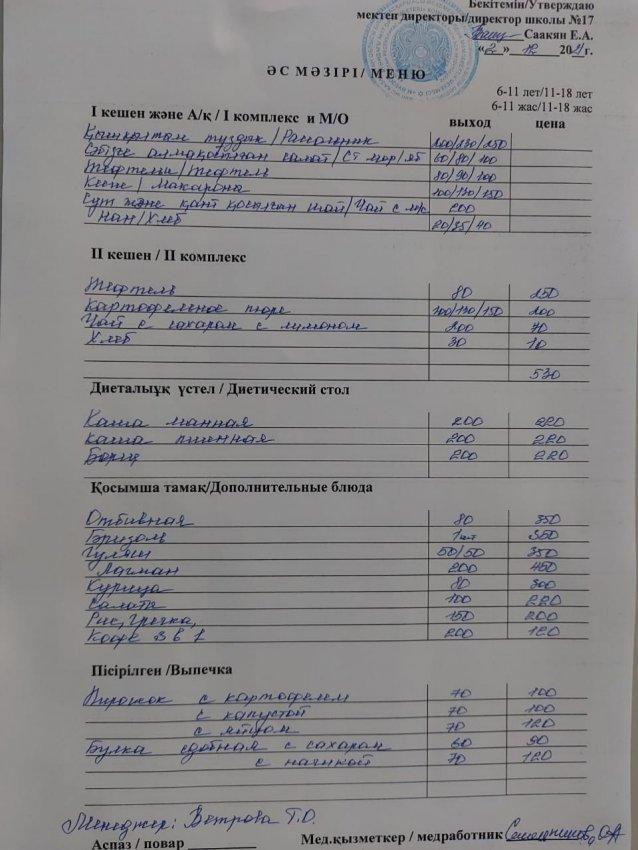 Бекітемін/Утверждаю
мектеп директоры/директор школы №17
Саакян Е.А.
«2» 12 2021г.
ӘС МӘЗІРІ/ МЕНЮ
6-11 лет/11-18 лет
6-11 жас/11-18 жас
І кешен және А/қ / І комплекс и М/О выход цена
Қышқылтым тұздық/Рассольник 200/230/250
салат/ 60/80/100
Тефтели/Тефтель 80/90/100
Кеспе/Макароны 100/130/150
Сүт және қант қосылған шай/Чай с 200
Нан/Хлеб 20/35/40
ІІ кешен / ІІ комплекс
Тефтель 80 250
Картофельное пюре 100/130/150 200
Чай с сахаром с лимоном 200 70
Хлеб 30 10
530
Диеталыұқ үстел / Диетический стол
Каша манная 200 220
Каша пшенная 200 220
Борщ 200 220
Қосымша тамақ/Дополнительные блюда
Отбивная 80 350
Бризоль 1шт 350
Гуляш 50/50 350
Лагман 200 450
Курица 80 300
Салаты 100 220
Рис, Гречка, 150 200
Кофе 3 в 1 200 120
Пісірілген /Выпечка
Пирожок с картофелем 70 100
с капустой 70 100
с 70 120
Булка сдобная с сахаром 60 90
с начинкой 70 120
Менеджер: Ветрова Т.О.
Аспаз / повар
Мед.қызметкер / медработник